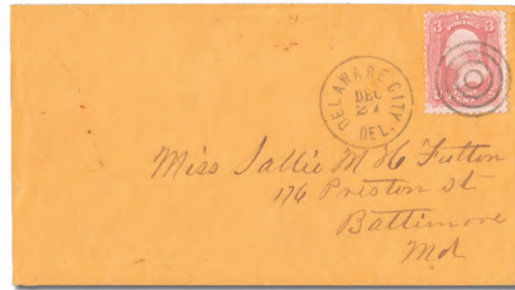 3 U.S. 3
POSTAGE
DELAWARE CITY
DEC
27
DEL.
Miss Sallie M H Fulton
176 Preston st
Battimore
Md